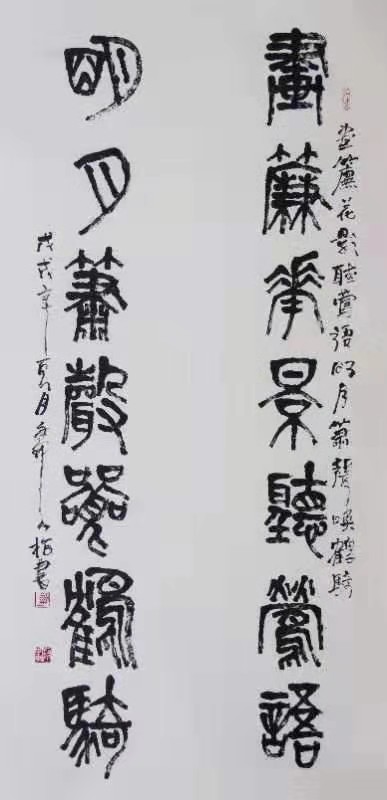 畫簾花影聽鶯語明月簫聲喚鶴騎
畫簾華景聽鶯語
明月簫聲喚鶴騎
戊戌年 月 梅書